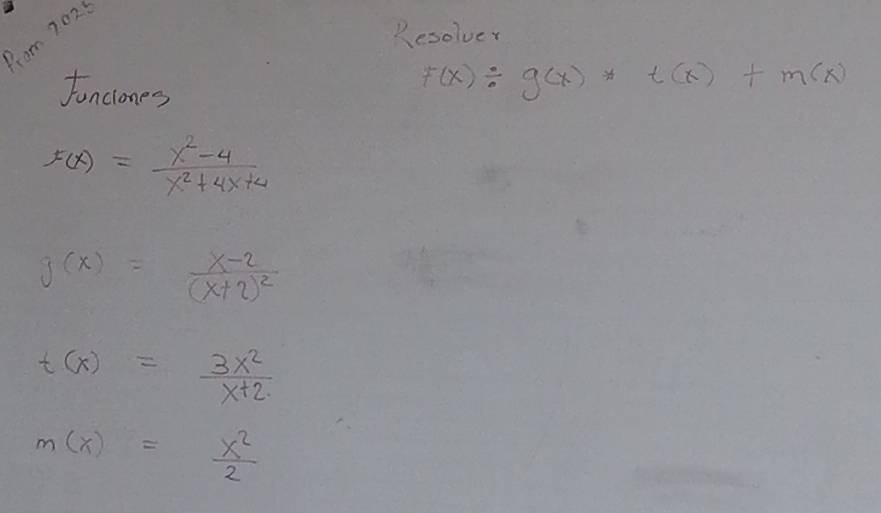 Prom 2025
Resolver
F(x) ÷ g(x) * t(x) + m(x)
Funciones
F(x) = \frac{x^2-4}{x^2+4x+4}
g(x) = \frac{x-2}{(x+2)^2}
t(x) = \frac{3x^2}{x+2}
m(x) = \frac{x^2}{2}